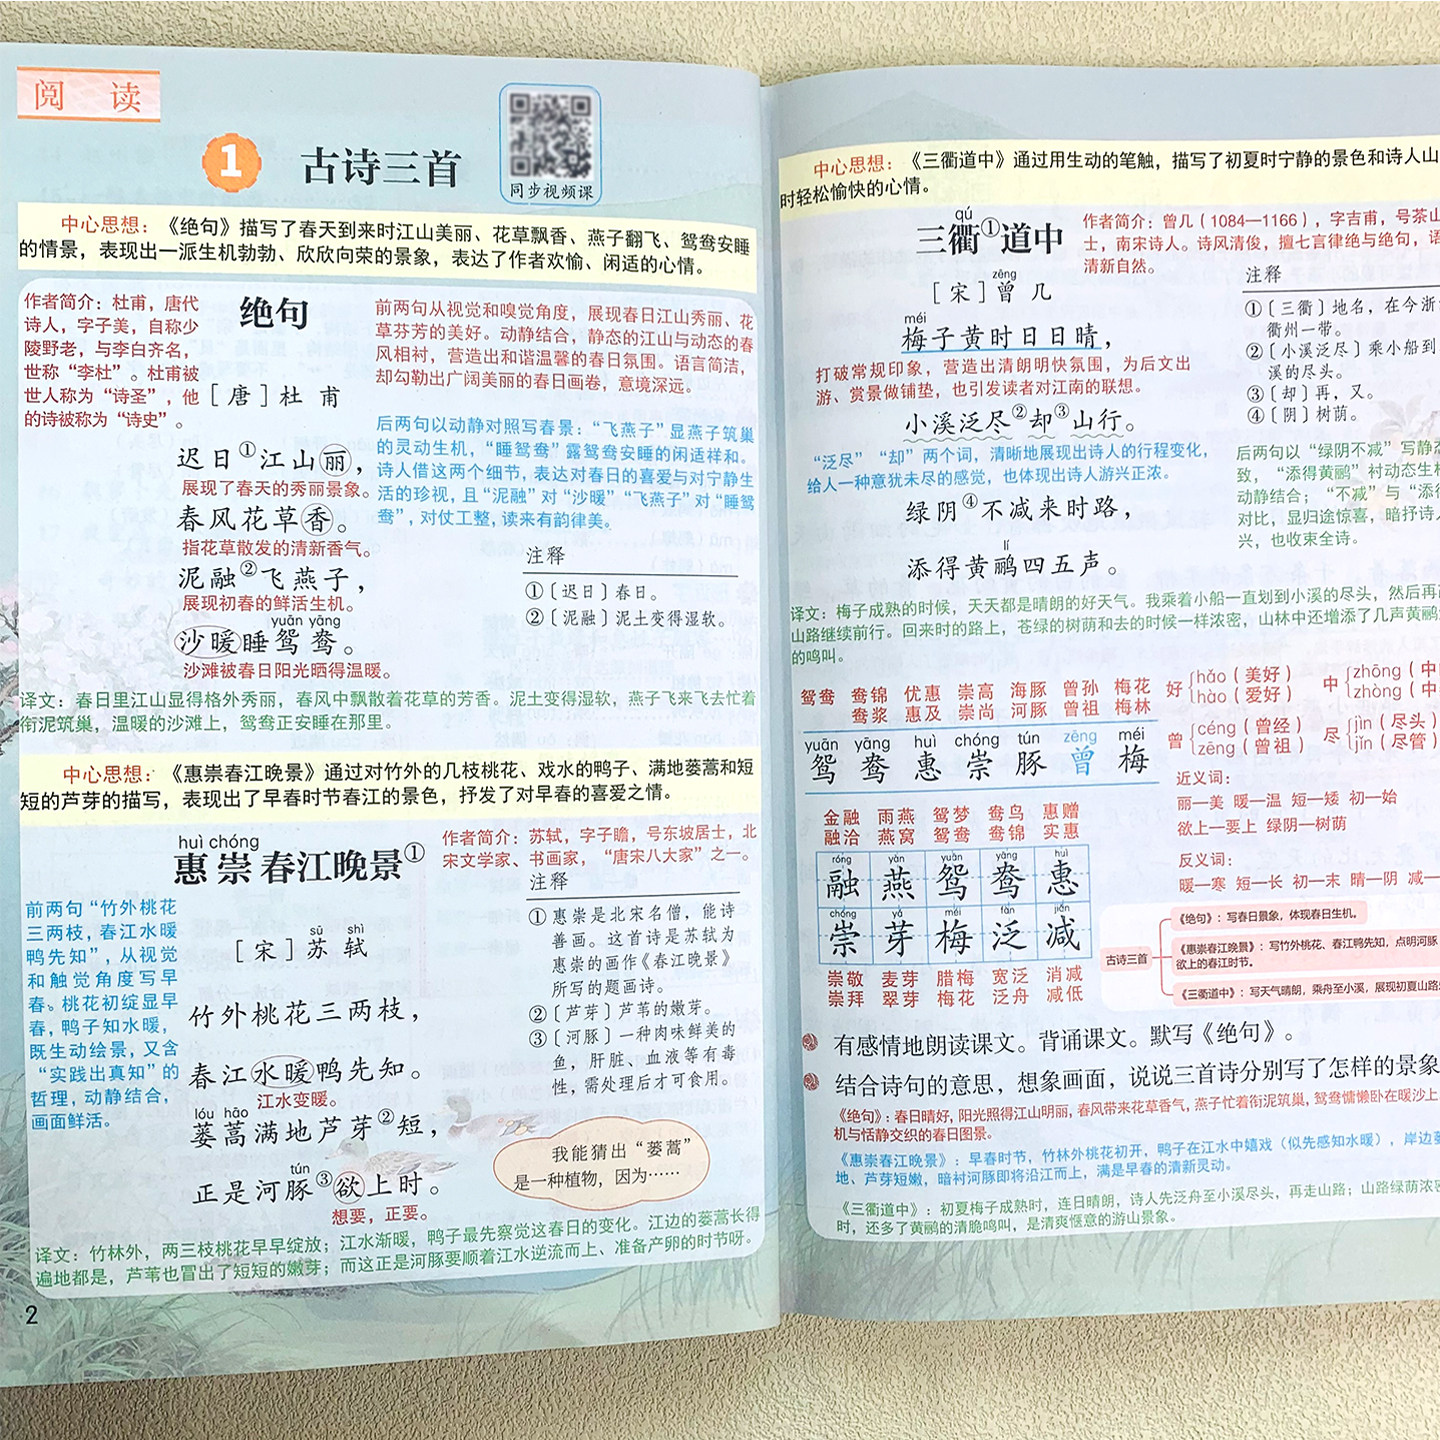 阅 读
1 古诗三首
同步视频课
中心思想：《绝句》描写了春天到来时江山美丽、花草飘香、燕子翻飞、鸳鸯安睡
的情景，表现出一派生机勃勃、欣欣向荣的景象，表达了作者欢愉、闲适的心情。
作者简介：杜甫，唐代
诗人，字子美，自称少
陵野老，与李白齐名，
世称“李杜”。杜甫被
世人称为“诗圣”，他
的诗被称为“诗史”。
绝句
［唐］杜 甫
前两句从视觉和嗅觉角度，展现春日江山秀丽、花
草芬芳的美好。动静结合，静态的江山与动态的春
风相衬，营造出和谐温馨的春日氛围。语言简洁，
却勾勒出广阔美丽的春日画卷，意境深远。
后两句以动静对照写春景：“飞燕子”显燕子筑巢
的灵动生机，“睡鸳鸯”露鸳鸯安睡的闲适祥和。
诗人借这两个细节，表达对春日的喜爱与对宁静生
活的珍视，且“泥融”对“沙暖”“飞燕子”对“睡鸳
鸯”，对仗工整，读来有韵律美。
迟日①江山丽，
展现了春天的秀丽景象。
春风花草香。
指花草散发的清新香气。
泥融②飞燕子，
展现初春的鲜活生机。
yuān yāng
沙暖睡鸳鸯。
沙滩被春日阳光晒得温暖。
注释
①〔迟日〕春日。
②〔泥融〕泥土变得湿软。
译文：春日里江山显得格外秀丽，春风中飘散着花草的芳香。泥土变得湿软，燕子飞来飞去忙着
衔泥筑巢，温暖的沙滩上，鸳鸯正安睡在那里。
中心思想：《惠崇春江晚景》通过对竹外的几枝桃花、戏水的鸭子、满地蒌蒿和短
短的芦芽的描写，表现出了早春时节春江的景色，抒发了对早春的喜爱之情。
huì chóng
惠崇春江晚景①
sū shì
［宋］苏 轼
作者简介：苏轼，字子瞻，号东坡居士，北
宋文学家、书画家，“唐宋八大家”之一。
前两句“竹外桃花
三两枝，春江水暖
鸭先知”，从视觉
和触觉角度写早
春。桃花初绽显早
春，鸭子知水暖，
既生动绘景，又含
“实践出真知”的
哲理，动静结合，
画面鲜活。
竹外桃花三两枝，
春江水暖鸭先知。
江水变暖。
lóu hāo
蒌蒿满地芦芽②短，
tún
正是河豚③欲上时。
想要，正要。
注释
①惠崇是北宋名僧，能诗
善画。这首诗是苏轼为
惠崇的画作《春江晚景》
所写的题画诗。
②〔芦芽〕芦苇的嫩芽。
③〔河豚〕一种肉味鲜美的
鱼，肝脏、血液等有毒
性，需处理后才可食用。
我能猜出“蒌蒿”
是一种植物，因为……
译文：竹林外，两三枝桃花早早绽放；江水渐暖，鸭子最先察觉这春日的变化。江边的蒌蒿长得
遍地都是，芦苇也冒出了短短的嫩芽；而这正是河豚要顺着江水逆流而上、准备产卵的时节呀。
2
中心思想：《三衢道中》通过用生动的笔触，描写了初夏时宁静的景色和诗人山
时轻松愉快的心情。
qú
三衢①道中
zēng
［宋］曾 几
作者简介：曾几（1084—1166），字吉甫，号茶山
士，南宋诗人。诗风清俊，擅七言律绝与绝句，语
清新自然。
méi
梅子黄时日日晴，
打破常规印象，营造出清朗明快氛围，为后文出
游、赏景做铺垫，也引发读者对江南的联想。
小溪泛尽②却③山行。
“泛尽”“却”两个词，清晰地展现出诗人的行程变化，
给人一种意犹未尽的感觉，也体现出诗人游兴正浓。
绿阴④不减来时路，
lí
添得黄鹂四五声。
注释
①〔三衢〕地名，在今浙
衢州一带。
②〔小溪泛尽〕乘小船到
溪的尽头。
③〔却〕再，又。
④〔阴〕树荫。
后两句以“绿阴不减”写静态
致，“添得黄鹂”衬动态生机
动静结合；“不减”与“添得
对比，显归途惊喜，暗抒诗人
兴，也收束全诗。
译文：梅子成熟的时候，天天都是晴朗的好天气。我乘着小船一直划到小溪的尽头，然后再
山路继续前行。回来时的路上，苍绿的树荫和去的时候一样浓密，山林中还增添了几声黄鹂
的鸣叫。
鸳鸯 鸯锦 优惠 崇高 海豚 曾孙 梅花
鸯浆 惠及 崇尚 河豚 曾祖 梅林
yuān yāng huì chóng tún zēng méi
鸳 鸯 惠 崇 豚 曾 梅
好 hǎo（美好）
hào（爱好）
中 zhōng（中
zhòng（中
曾 céng（曾经）
zēng（曾祖）
尽 jìn（尽头）
jǐn（尽管）
近义词：
丽—美 暖—温 短—矮 初—始
欲上—要上 绿阴—树荫
反义词：
暖—寒 短—长 初—末 晴—阴 减—
金融 雨燕 鸳梦 鸯鸟 惠赠
融洽 燕窝 鸳鸯 鸯锦 实惠
róng yàn yuān yāng huì
融 燕 鸳 鸯 惠
chóng yá méi fàn jiǎn
崇 芽 梅 泛 减
崇敬 麦芽 腊梅 宽泛 消减
崇拜 翠芽 梅花 泛舟 减低
古诗三首
《绝句》：写春日景象，体现春日生机。
《惠崇春江晚景》：写竹外桃花、春江鸭先知，点明河豚
欲上的春江时节。
《三衢道中》：写天气晴朗，乘舟至小溪，展现初夏山路
有感情地朗读课文。背诵课文。默写《绝句》。
结合诗句的意思，想象画面，说说三首诗分别写了怎样的景象
《绝句》：春日晴好，阳光照得江山明丽，春风带来花草香气，燕子忙着衔泥筑巢，鸳鸯慵懒卧在暖沙上
机与恬静交织的春日图景。
《惠崇春江晚景》：早春时节，竹林外桃花初开，鸭子在江水中嬉戏（似先感知水暖），岸边蒌
地、芦芽短嫩，暗衬河豚即将沿江而上，满是早春的清新灵动。
《三衢道中》：初夏梅子成熟时，连日晴朗，诗人先泛舟至小溪尽头，再走山路；山路绿荫浓密
时，还多了黄鹂的清脆鸣叫，是清爽惬意的游山景象。